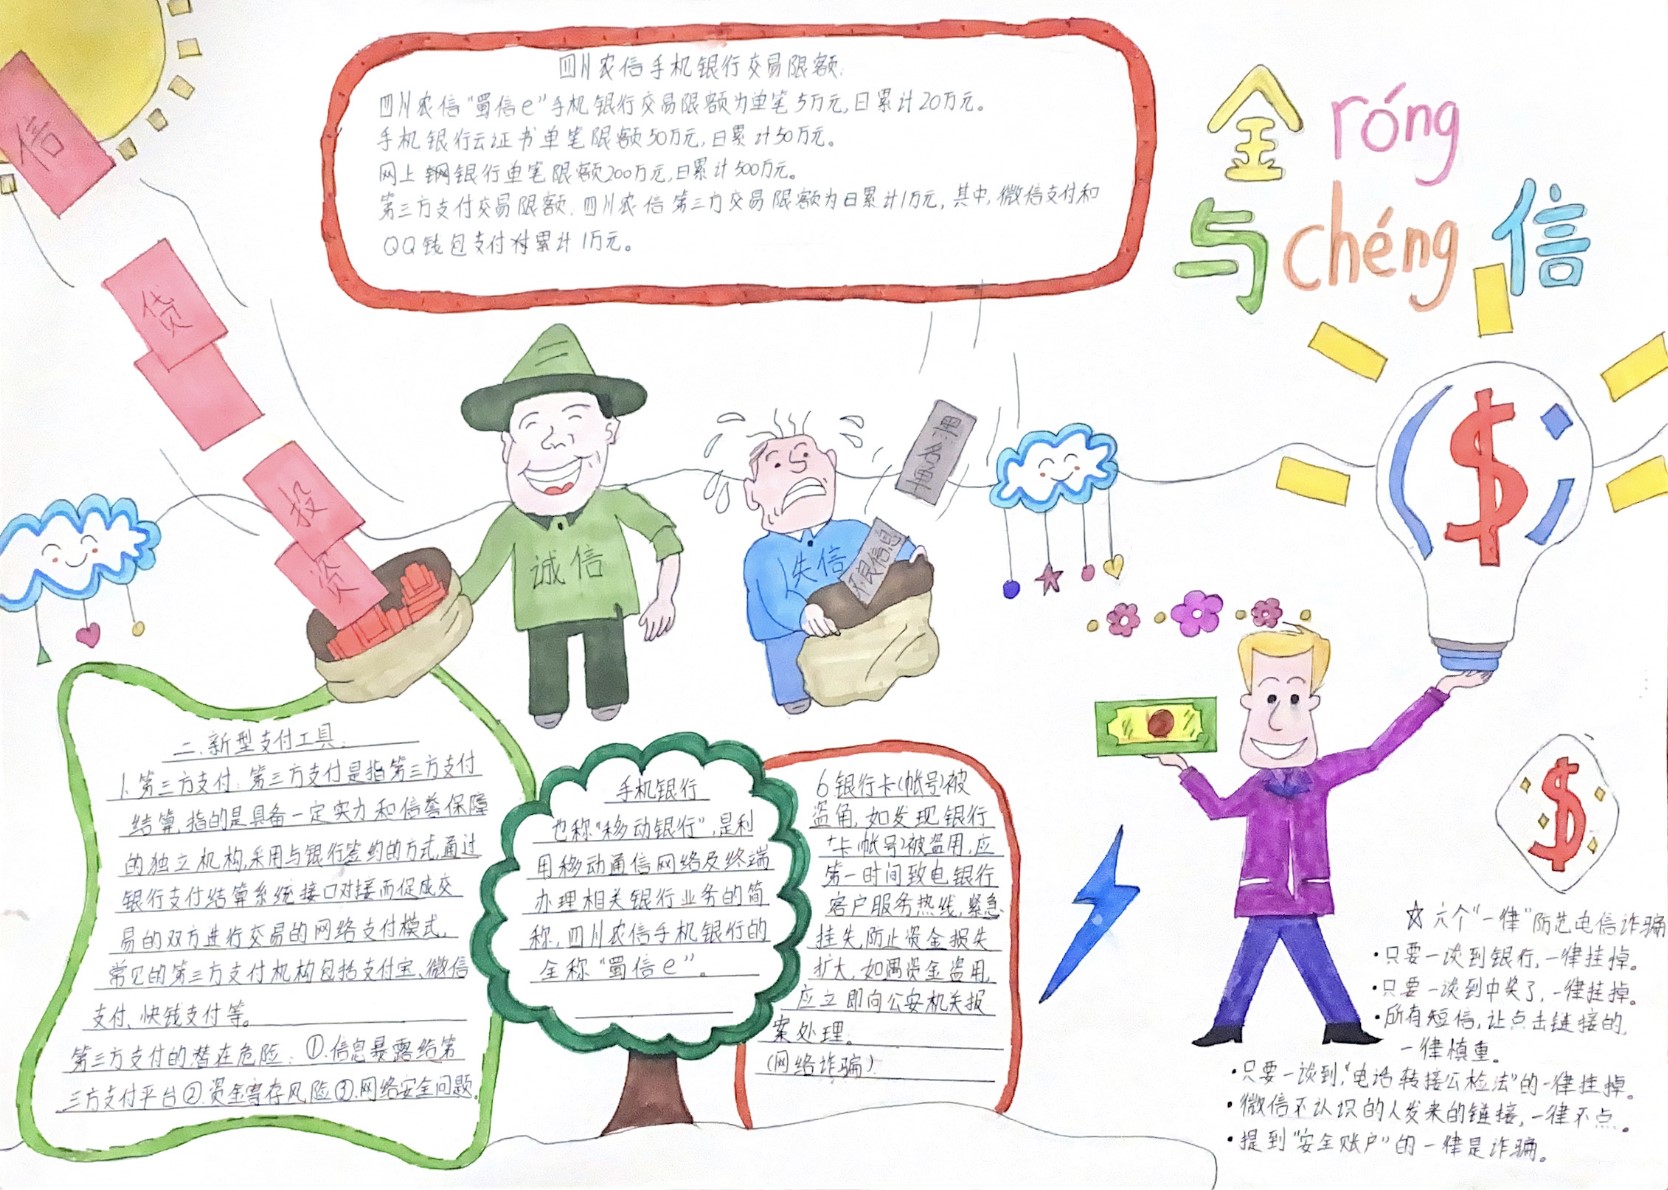 四川农信手机银行交易限额.
四川农信“蜀信e”手机银行交易限额为单笔5万元,日累计20万元。
手机银行云证书单笔限额50万元,日累计50万元。
网上钢银行单笔限额200万元,日累计500万元。
第三方支付交易限额.四川农信第三方交易限额为日累计1万元,其中,微信支付和
QQ钱包支付对累计1万元。
金 róng
与 chéng 信
信
贷
投
资
诚信
失信
黑名单
不良信息
$
$
二.新型支付工具.
1.第三方支付:第三方支付是指第三方支付
结算,指的是具备一定实力和信誉保障
的独立机构,采用与银行签约的方式,通过
银行支付结算系统接口对接而促成交
易的双方进行交易的网络支付模式.
常见的第三方支付机构包括支付宝、微信
支付、快钱支付等。
第三方支付的潜在危险:①.信息暴露给第
三方支付平台②资金寄存风险③.网络安全问题.
手机银行
也称“移动银行”,是利
用移动通信网络及终端
办理相关银行业务的简
称,四川农信手机银行的
全称“蜀信e”。
6银行卡(帐号)被
盗角,如发现银行
卡(帐号)被盗用,应
第一时间致电银行
客户服务热线,紧急
挂失,防止资金损失
扩大,如遇资金盗用,
应立即向公安机关报
案处理.
(网络诈骗)
☆六个“一律”防范电信诈骗
·只要一谈到银行,一律挂掉。
·只要一谈到中奖了,一律挂掉。
·所有短信,让点击链接的,
一律慎重。
·只要一谈到,“电话转接公检法”的一律挂掉。
·微信不认识的人发来的链接,一律不点。
·提到“安全账户”的一律是诈骗。